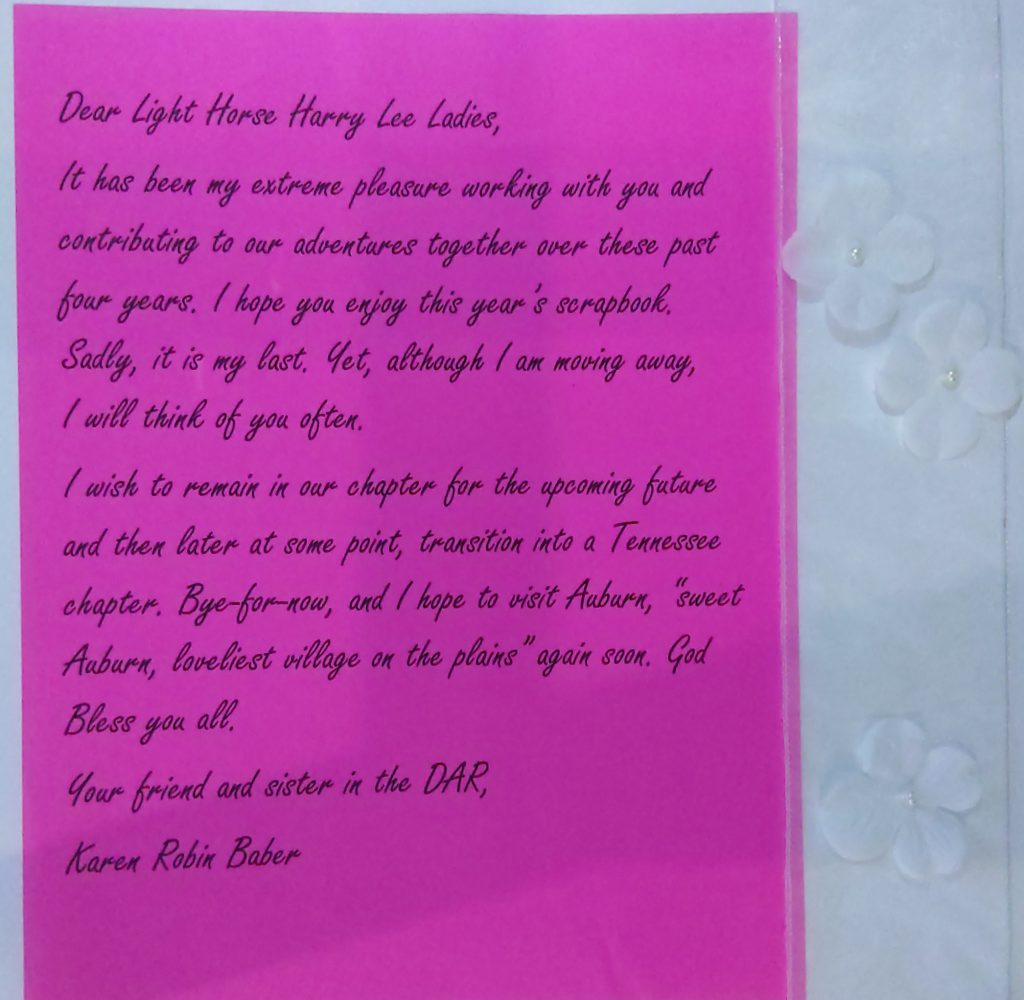 Dear Light Horse Harry Lee Ladies,
It has been my extreme pleasure working with you and
contributing to our adventures together over these past
four years. I hope you enjoy this year's scrapbook.
Sadly, it is my last. Yet, although I am moving away,
I will think of you often.
I wish to remain in our chapter for the upcoming future
and then later at some point, transition into a Tennessee
chapter. Bye-for-now, and I hope to visit Auburn, "sweet
Auburn, loveliest village on the plains" again soon. God
Bless you all.
Your friend and sister in the DAR,
Karen Robin Baber